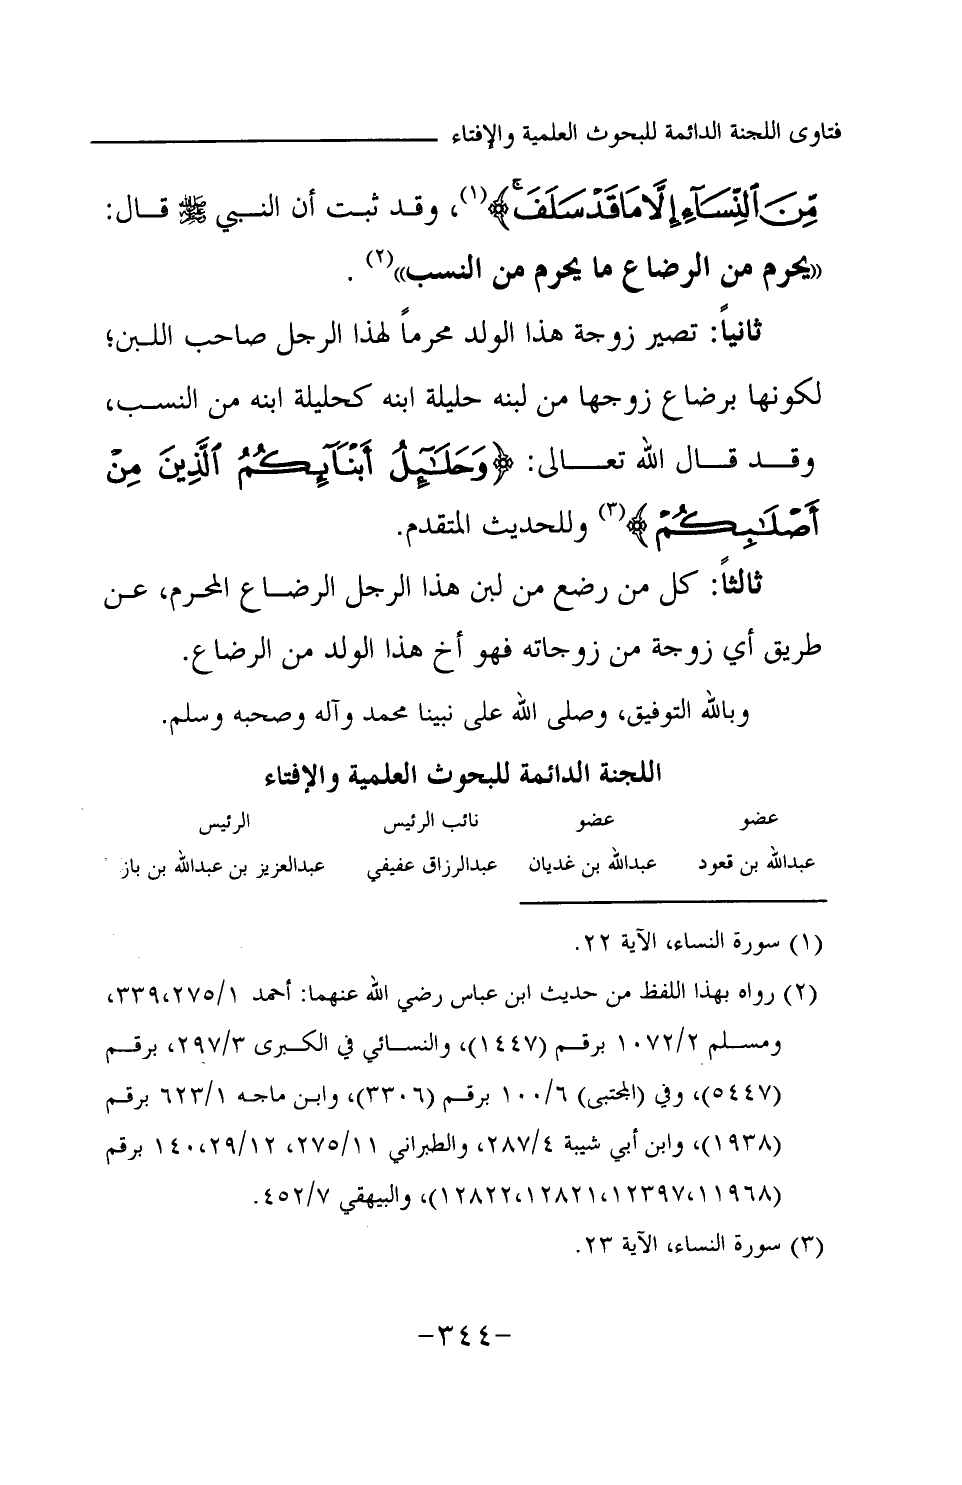 فتاوى اللجنة الدائمة للبحوث العلمية والإفتاء
مِّنَ ٱلنِّسَآءِ إِلَّا مَا قَدْ سَلَفَ ۚ﴾(١)، وقد ثبت أن النبي ﷺ قال:
«يحرم من الرضاع ما يحرم من النسب»(٢) .
ثانياً: تصير زوجة هذا الولد محرماً لهذا الرجل صاحب اللبن؛
لكونها برضاع زوجها من لبنه حليلة ابنه كحليلة ابنه من النسب،
وقد قال الله تعالى: ﴿وَحَلَٰٓئِلُ أَبْنَآئِكُمُ ٱلَّذِينَ مِنْ
أَصْلَٰبِكُمْ﴾(٣) وللحديث المتقدم.
ثالثاً: كل من رضع من لبن هذا الرجل الرضاع المحرم، عن
طريق أي زوجة من زوجاته فهو أخ هذا الولد من الرضاع.
وبالله التوفيق، وصلى الله على نبينا محمد وآله وصحبه وسلم.
اللجنة الدائمة للبحوث العلمية والإفتاء
عضو عضو نائب الرئيس الرئيس
عبدالله بن قعود عبدالله بن غديان عبدالرزاق عفيفي عبدالعزيز بن عبدالله بن باز
(١) سورة النساء، الآية ٢٢.
(٢) رواه بهذا اللفظ من حديث ابن عباس رضي الله عنهما: أحمد ٢٧٥/١، ٣٣٩،
ومسلم ١٠٧٢/٢ برقم (١٤٤٧)، والنسائي في الكبرى ٢٩٧/٣، برقم
(٥٤٤٧)، وفي (المجتبى) ١٠٠/٦ برقم (٣٣٠٦)، وابن ماجه ٦٢٣/١ برقم
(١٩٣٨)، وابن أبي شيبة ٢٨٧/٤، والطبراني ٢٧٥/١١، ٢٩/١٢، ١٤٠ برقم
(١١٩٦٨، ١٢٣٩٧، ١٢٨٢١، ١٢٨٢٢)، والبيهقي ٤٥٢/٧.
(٣) سورة النساء، الآية ٢٣.
-٣٤٤-